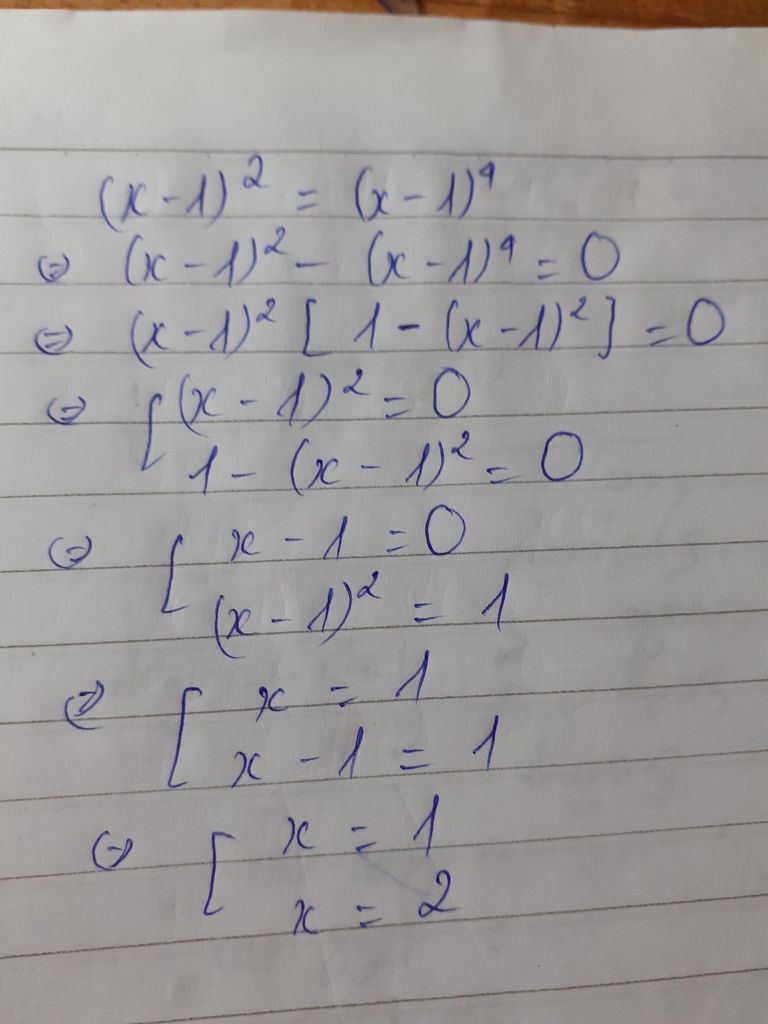 (x-1)² = (x-1)⁴
⇔ (x-1)² - (x-1)⁴ = 0
⇔ (x-1)² [ 1 - (x-1)² ] = 0
⇔ [ (x-1)² = 0
1 - (x-1)² = 0
⇔ [ x - 1 = 0
(x-1)² = 1
⇔ [ x = 1
x - 1 = 1
⇔ [ x = 1
x = 2